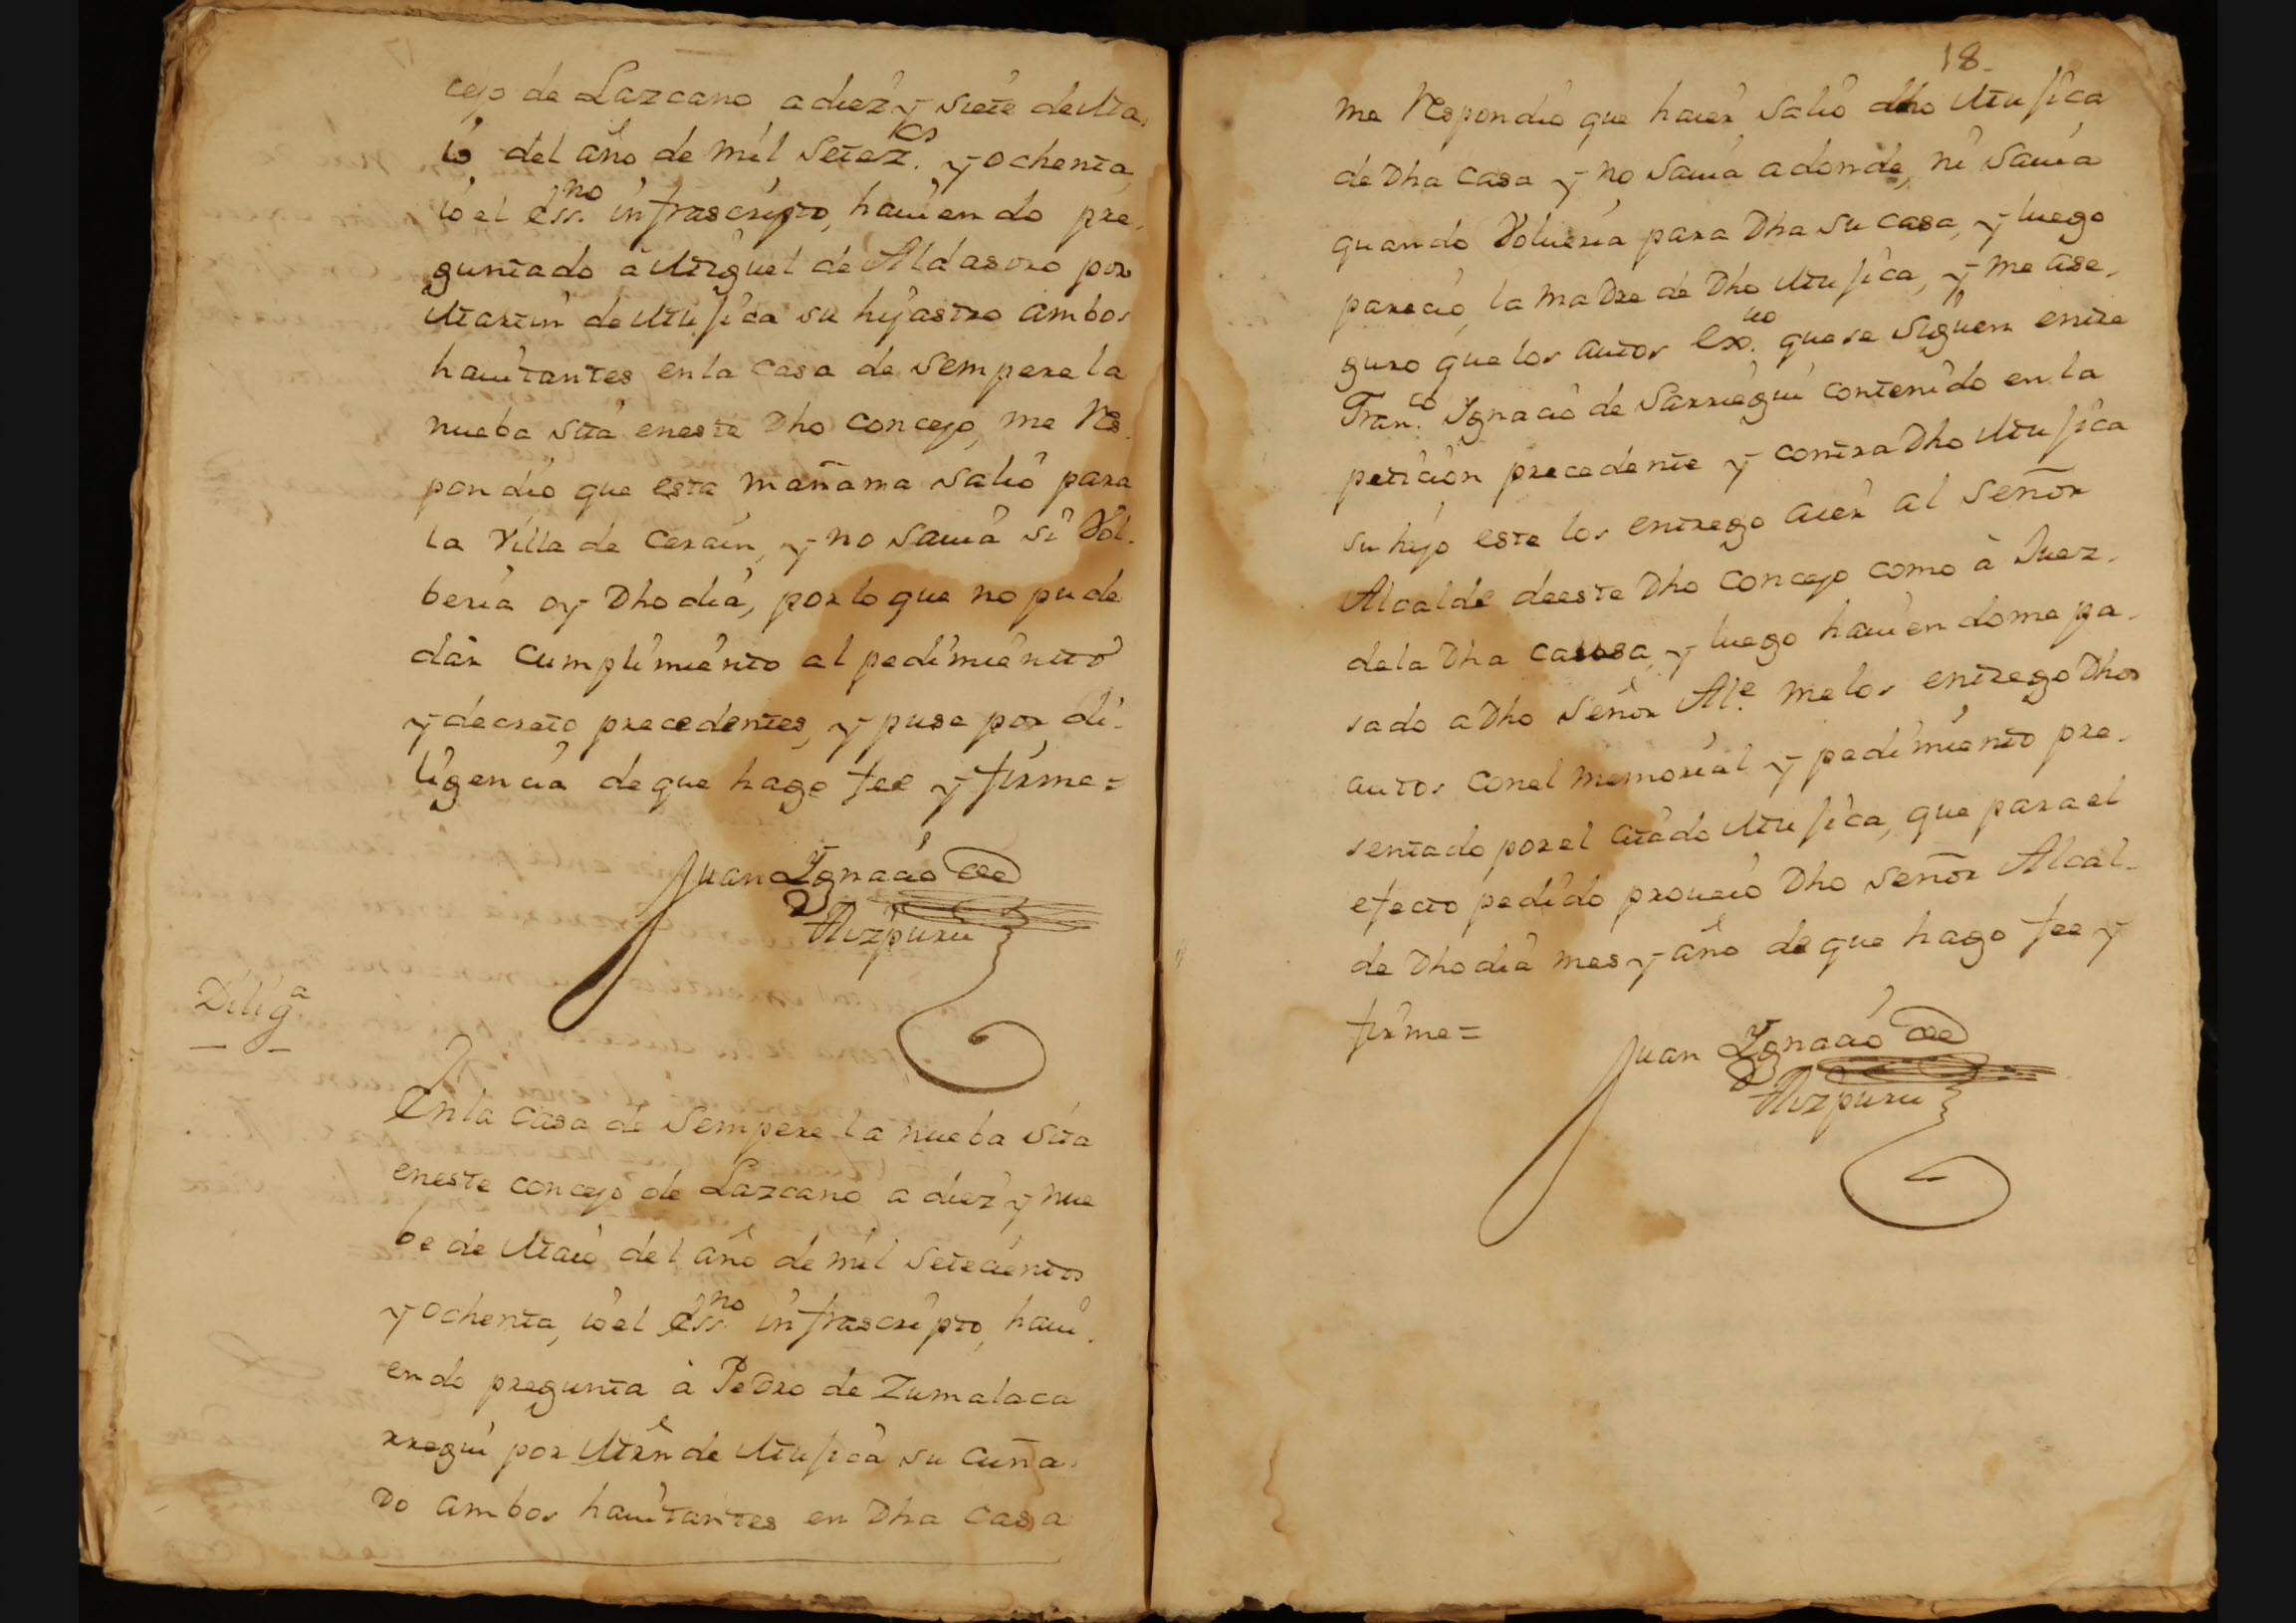 cejo de Lazcano a diez y siete de Ma,
io del año de mil setez.os y ochenta,
io el Ess.no infrascripto, hauiendo pre,
guntado à Miguel de Aldasoro por
Martin de Mujica su hijastro ambos
hauitantes en la casa de Sempere la
nueba sita en este Dho concejo, me Res.
pondio que esta mañama salio para
la Villa de Cerain, y no sauia si Vol.
beria oy Dho dia, por lo que no pude
dar cumplimiento al pedimiento
y decreto precedentes, y puse por di-
ligencia de que hago fee y firme=
Juan Ignacio de
Aizpuru
Dilig.a
En la casa de Sempere la nueba sita
en este concejo de Lazcano a diez y nue
be de Maio del año de mil setecientos
y ochenta, io el Ess.no infrascripto, haui.
endo pregunta à Pedro de Zumalaca
rregui por Mrn de Mujica su cuña.
do ambos hauitantes en Dha casa
18.
me Respondio que haier salio dho Mujica
de Dha casa y no sauia adonde, ni sauia
quando Volueria para Dha su casa, y luego
parecio, la madre de Dho Mujica, y me ase,
guro que los autos Ex.uo que se siguen entre
Fran.co Ignacio de Sarriegui contenido en la
peticion precedente y contra Dho Mujica
su hijo este los entrego aier al señor
Alcalde de este Dho concejo como à Juez.
de la Dha causa, y luego hauiendome pa.
sado a Dho señor Al.e me los entrego Dhos
autos con el memorial y pedimiento pre.
sentado por el citado Mujica, que para el
efecto pedido proueio Dho señor Alcal-
de Dho dia mes y año de que hago fee y
firme=
Juan Ignacio de
Aizpuru